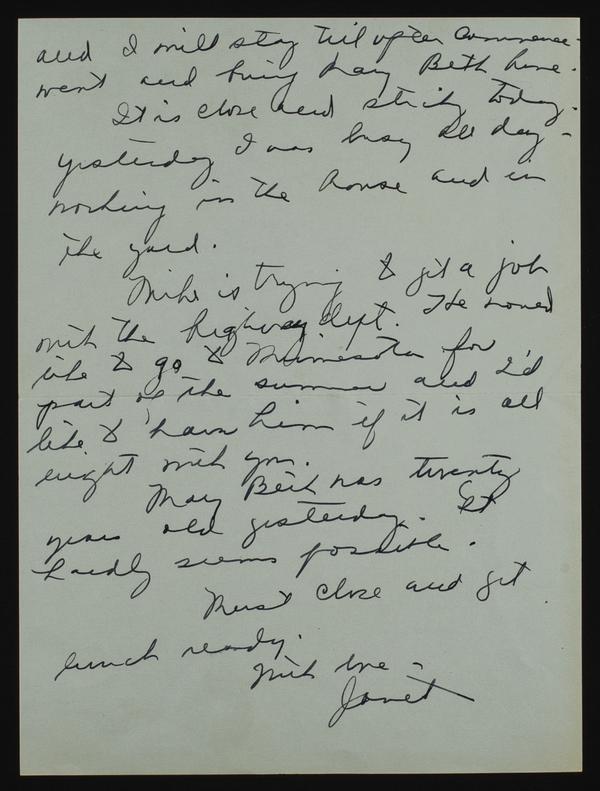 and I will stay til after Commence-
ment and bring Mary Beth home.
It is close and sticky today.
Yesterday I was busy all day -
working in the house and in
the yard.
Mike is trying to get a job
with the highway dept. He would
like to go to Minnesota for
part of the summer and I'd
like to have him if it is all
right with you.
Mary Beth was twenty
years old yesterday. It
hardly seems possible.
Must close and get
lunch ready.
With love -
Janet